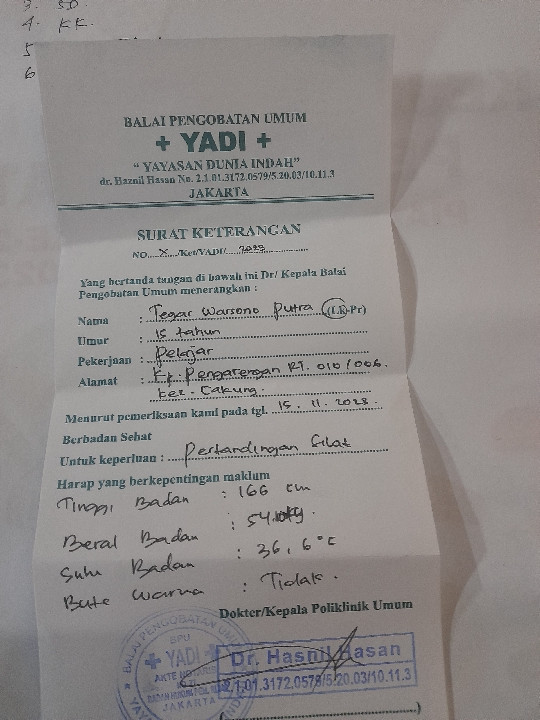 3. SD
4. KK.
5
6
BALAI PENGOBATAN UMUM
+ YADI +
"YAYASAN DUNIA INDAH"
dr. Haznil Hasan No. 2.1.01.3172.0579/5.20.03/10.11.3
JAKARTA
SURAT KETERANGAN
NO. X /Ket/YADI/ 2023
Yang bertanda tangan di bawah ini Dr/ Kepala Balai
Pengobatan Umum menerangkan :
Nama : Tegar Warsono Putra (LK-Pr)
Umur : 15 tahun
Pekerjaan : Pelajar
Alamat : Kp. Pengarengan RT. 010/006.
kec. Cakung.
Menurut pemeriksaan kami pada tgl. 15. 11. 2023.
Berbadan Sehat
Untuk keperluan : Pertandingan Silat
Harap yang berkepentingan maklum
Tinggi Badan : 166 cm
Berat Badan : 54 kg.
Suhu Badan : 36,6°C
Buta Warna : Tidak.
Dokter/Kepala Poliklinik Umum
BALAI PENGOBATAN UMUM
BPU
+ YADI +
AKTE NOTARIS
JAKARTA
Dr. Hasnil Hasan
2.1.01.3172.0579/5.20.03/10.11.3